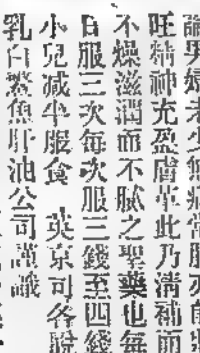 論男婦老少無病常服亦能
旺精神充盈膚革此乃淸補而
不燥滋潤而不膩之聖藥也每
日服三次每次服三錢至四錢
小兒减半服食　英京司各脫
乳白鰵魚肝油公司謹識